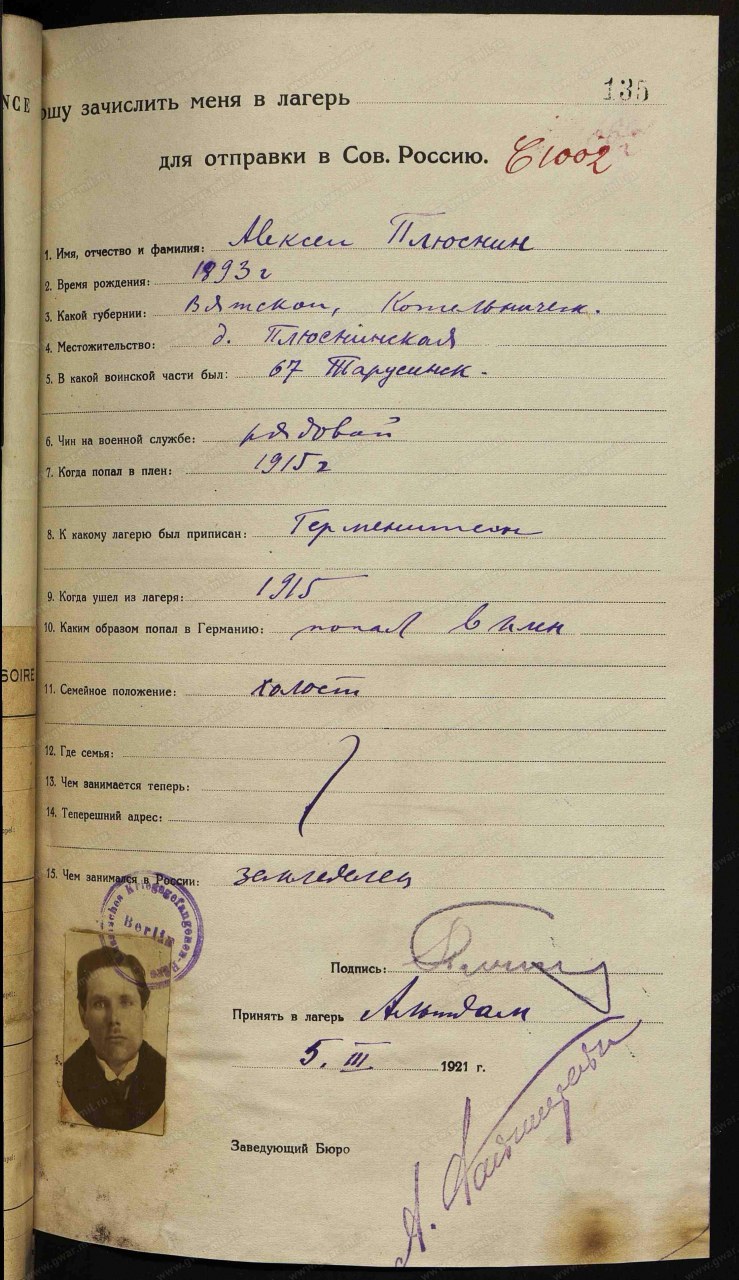 NCE
ошу зачислить меня в лагерь
135
для отправки в Сов. Россию.
С1002
1. Имя, отчество и фамилия: Алексей Плюснин
2. Время рождения: 1893 г
3. Какой губернии: Вятской, Котельническ.
4. Местожительство: д. Плюснинская
5. В какой воинской части был: 67 Тарусинск.
6. Чин на военной службе: рядовой
7. Когда попал в плен: 1915 г
8. К какому лагерю был приписан:
9. Когда ушел из лагеря: 1915
10. Каким образом попал в Германию: попал в плен
SOIRE
11. Семейное положение: холост
12. Где семья:
13. Чем занимается теперь:
14. Теперешний адрес:
15. Чем занимался в России: земледелец
Kriegsgefangenen-
Berlin
Подпись:
Принять в лагерь Альтдам
5. III. 1921 г.
Заведующий Бюро